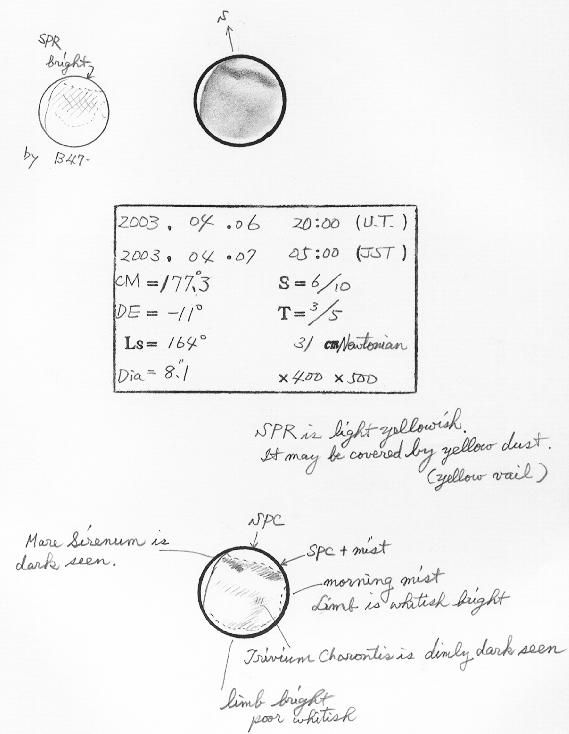 S
SPR
bright
by B47-
2003. 04.06 20:00 (U.T.)
2003. 04.07 05:00 (JST)
CM = 177.°3 S = 6/10
DE = -11° T = 3/5
Ls = 164° 31 cm/Newtonian
Dia = 8."1 ×400 ×500
SPR is light yellowish.
It may be covered by yellow dust.
(yellow vail)
SPC
Mare Sirenum is
dark seen.
SPC + mist
morning mist
Limb is whitish bright
Trivium Charontis is dimly dark seen
limb bright
poor whitish